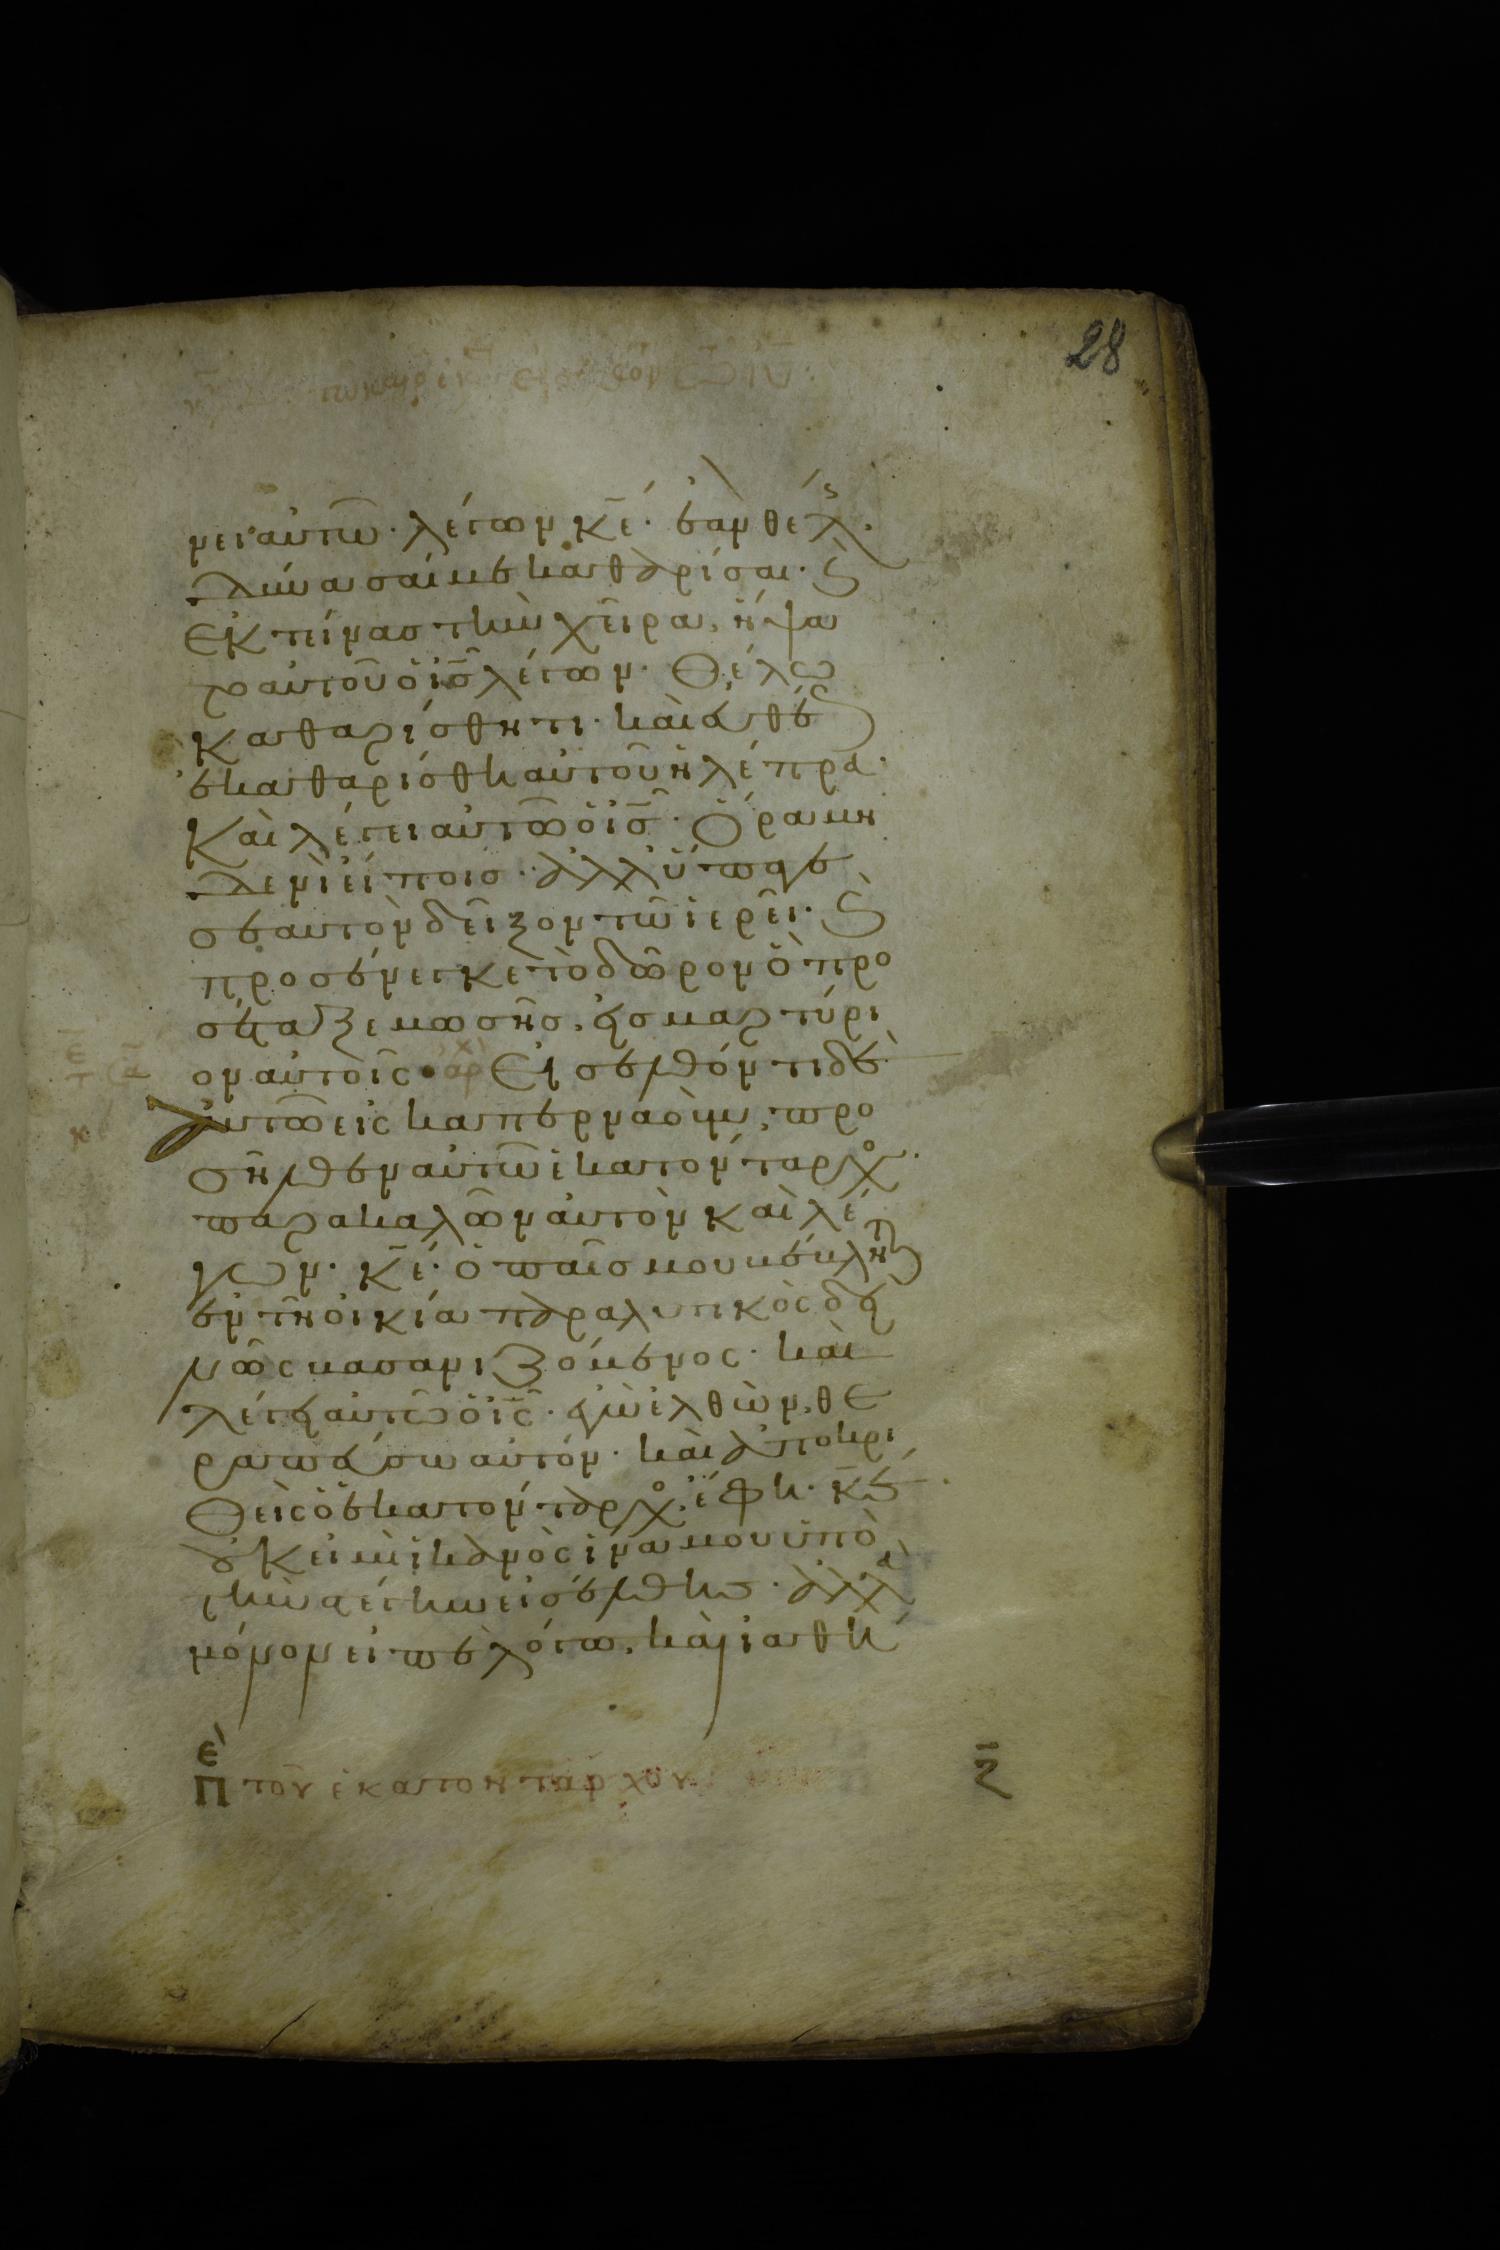 28
νει αὐτῶ· λέγων κ̅ε̅· ἐὰν θέλ
δύνασαί με καθαρίσαι· ϛ̀
ἐκτείνας τὴν χεῖρα, ἥψα
το αὐτοῦ ὁ ι̅ς̅ λέγων· θέλω
καθαρίσθητι· καὶ εὐθέ
ἐκαθαρίσθη αὐτοῦ ἡ λέπρα·
καὶ λέγει αὐτῶ ὁ ι̅ς̅· ὅρα μη
δενὶ εἴποις· ἀλλ' ὕπαγε
σεαυτὸν δεῖξον τῶ ἱερεῖ· ϛ̀
προσένεγκε τὸ δῶρον ὃ προ
σέταξε μωσῆς, εἰς μαρτύρι
ον αὐτοῖς· ἀρχ Εἰσελθόντι δὲ
αὐτῶ εἰς καπερναοὺμ, προ
σῆλθεν αὐτῶ ἑκατόνταρχο
παρακαλῶν αὐτὸν καὶ λέ
γων· κ̅ε̅· ὁ παῖς μου βέβλητ
ἐν τῆ οἰκία παραλυτικὸς δει
νῶς βασανιζόμενος· καὶ
λέγει αὐτῶ ὁ ι̅ς̅· ἐγὼ ἐλθὼν, θε
ραπεύσω αὐτόν· καὶ ἀποκρι
θεὶς ὁ ἑκατόνταρχο, ἔφη· κ̅ε̅
οὐκ εἰμὶ ἱκανὸς ἵνα μου ὑπὸ
τὴν στέγην εἰσέλθης· ἀλλὰ
μόνον εἰπὲ λόγω, καὶ ἰαθή
ε̅
π τοῦ ἑκατοντάρχου
ζ̅